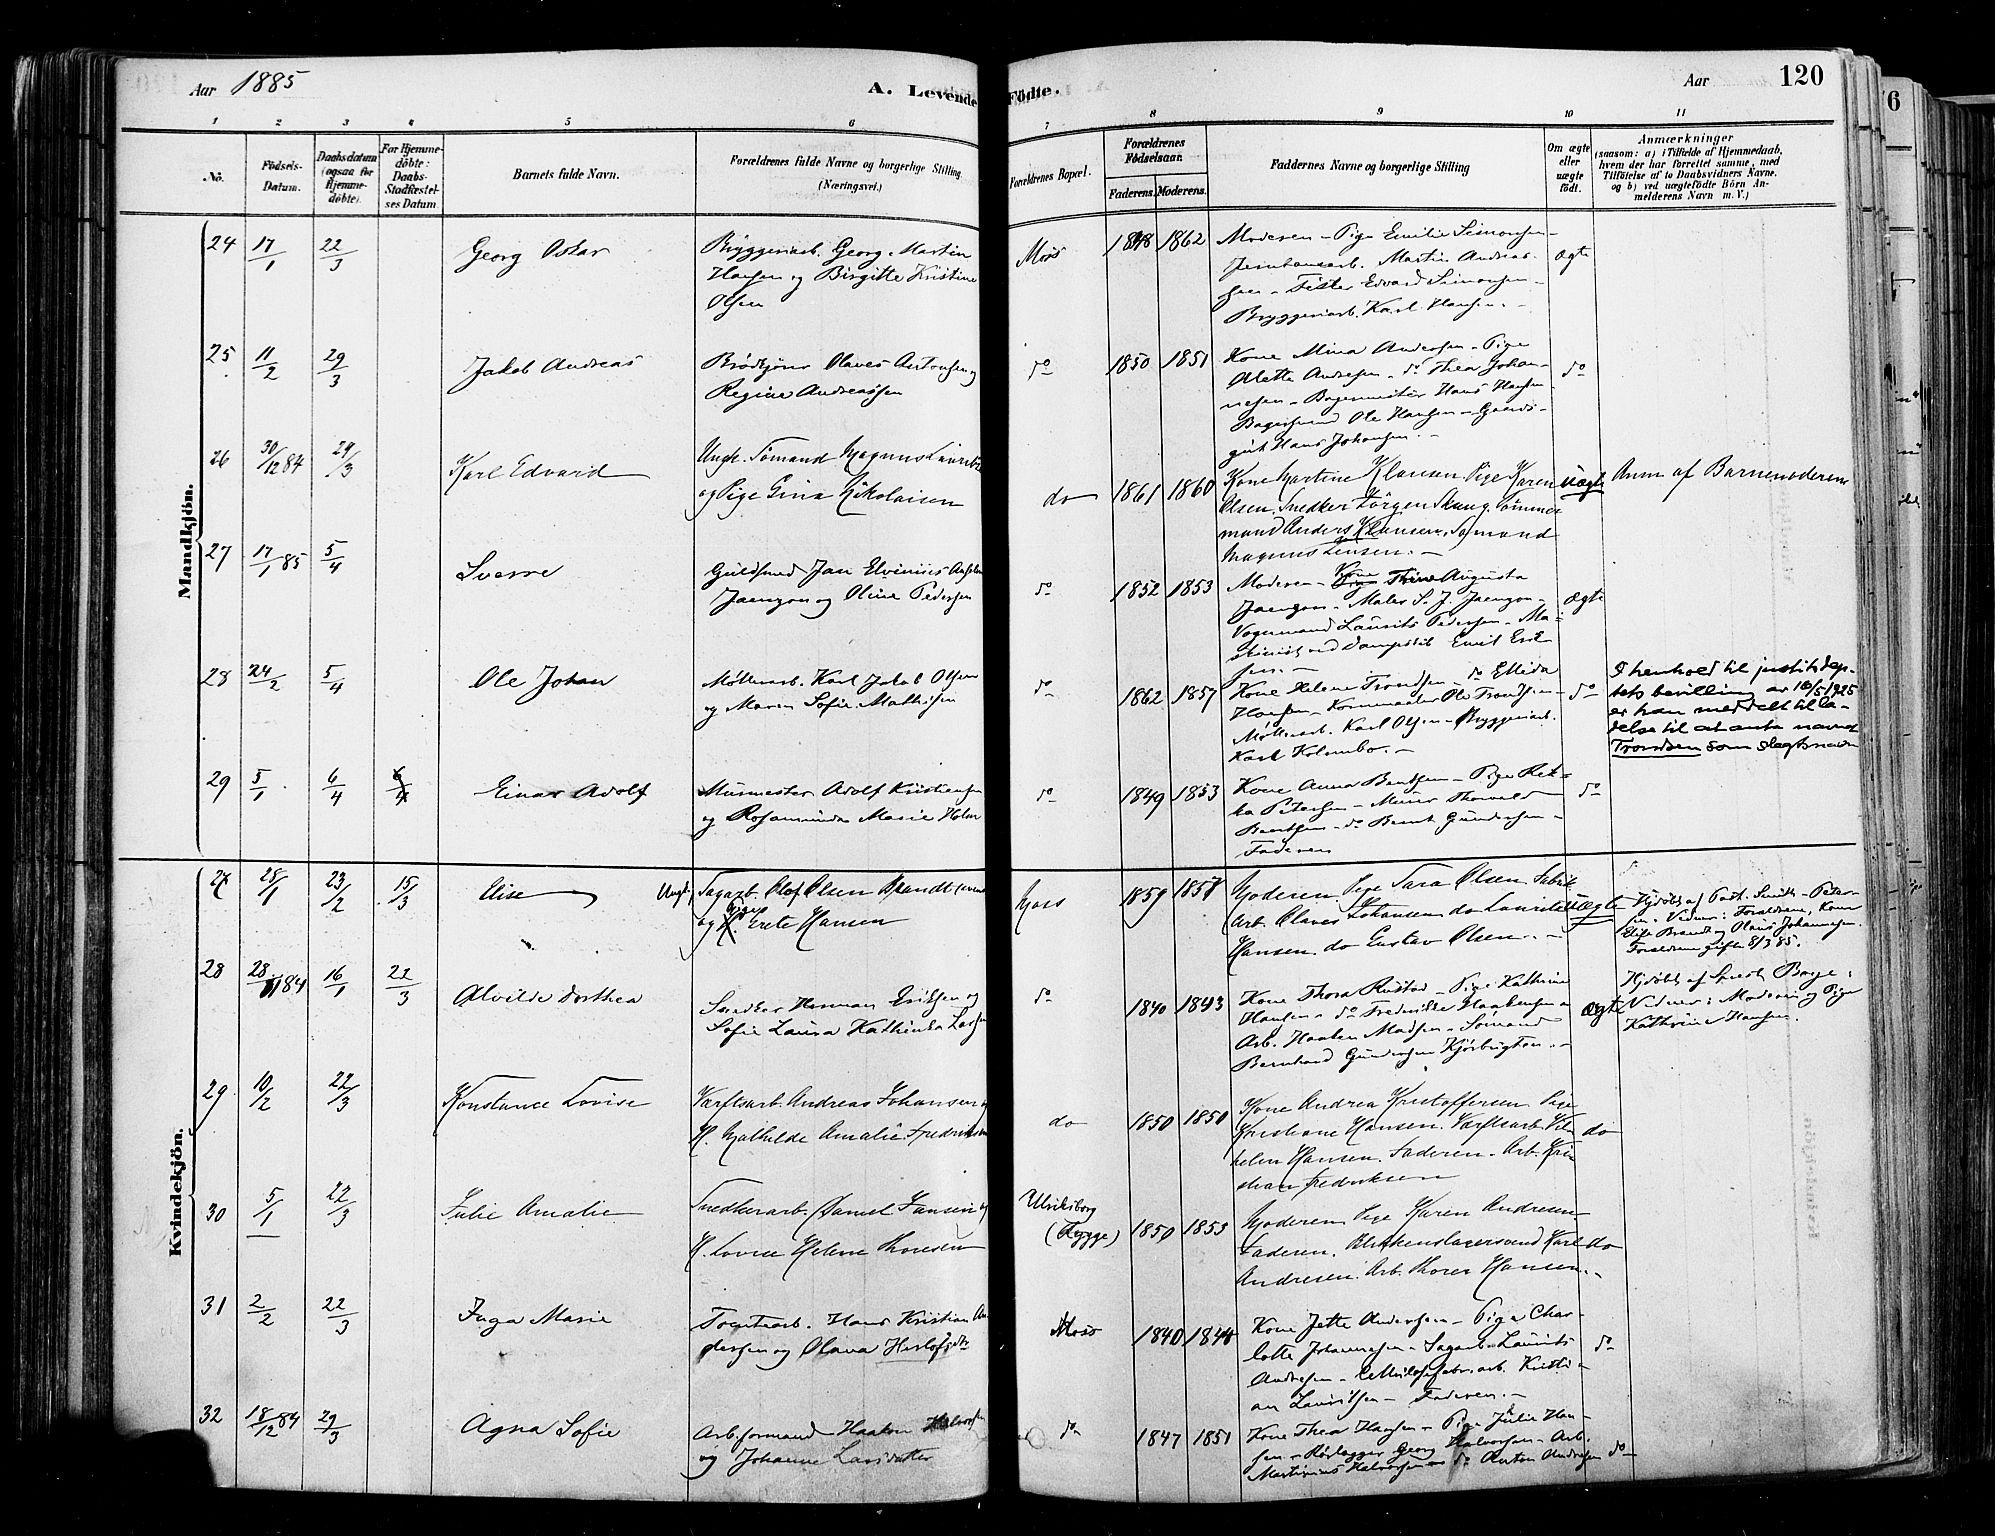 Aar 1885
A. Levende Födte.
Aar
120
1
2
3
4
5
6
7
8
9
10
11
No.
Födsels-Datum.
Daabsdatum (ogsaa for Hjemmedöbte).
For Hjemmedöbte: Daabs-Stadfæstelses Datum
Barnets fulde Navn.
Forældrenes fulde Navne og borgerlige Stilling
(Næringsvei.)
Forældrenes Bopæl.
Forældrenes Födselsaar.
Faderens.
Moderens.
Faddernes Navne og borgerlige Stilling
Om ægte eller uægte födt.
Anmærkninger
(saasom: a) i Tilfælde af Hjemmedaab, hvem der har forrettet samme, med Tilföielse af to Daabsvidners Navne. og b) ved uægtefödte Börn Anmelderens Navn m. V.)
Mandkjön.
24 17/1 22/3 Georg Oskar
Bryggeriarb. Georg Martin
Hansen og Birgitte Kristine
Olsen
Moss 1862
Moderen - Pige Emilie Simonsen -
Martin Andreas-
sen - Edvard Simonsen -
Bryggeriarb. Karl Hansen. -
ægte
25 11/2 29/3 Jakob Andreas
Brödkjörer Olaves Antonsen og
Regine Andreassen
do 1850 1851
Kone Mina Andersen - Pige
Alette Andresen - do Thea Johan-
nesen - Bagermester Hans Hansen
Bagersvend Ole Hansen - Gaards-
gut Hans Johansen. -
do
26 30/12 84 29/3 Karl Edvard
Ungk. Sömand Magnus
og Pige Gina Nikolaisen
do 1861 1860
Kone Martine Klausen Pige Karen
Olsen. Snedker Jörgen Skaug. Tömmer
mand Anders Klausen. Sömand
Magnus Jensen. -
uægte
Anm af Barnemoderen
27 17/1 85 5/4 Sverre
Guldsmed Jan Elvinius
Jaengon og Oline Pedersen
do 1852 1853
Moderen - Kone Augusta
Jaengon - Maler S. J. Jaengon -
Vognmand Laurits Pedersen - Ma-
skinist ved Dampskib Emil Erik
sen. -
ægte
28 24/2 5/4 Ole Johan
Möllerarb. Karl Jakob Olsen
og Maren Sofie Mathisen
do 1862 1857
Kone Helene Trondsen - do Ellida
Hansen - Ole Trondsen -
Möllerarb. Karl Olsen - Bryggeriarb.
Karl Kolembo. -
do
I henhold til justitsdep-
tets bevilling av 16/5 1925
er han meddelt tilla-
delse til at anta navnet
Trondsen som slegtsnavn
29 5/1 6/4 6/4 Einar Adolf
Murmester Adolf Kristiansen
og Rosamunda Marie Holm
do 1849 1853
Kone Anna Bentsen - Pige
Petersen - Murer Thorvald
Bentsen - do Bernt Gundersen -
Faderen
do
Kvindekjön.
28/1 23/2 15/3 Elise
Ungk. Sagarb. Olof Olsen Brandt
og Pige Grete Hansen
Moss 1859
Moderen. Pige Sara Olsen. Fabrik
Arb. Olaves Johansen do
Hansen. do Gustav Olsen. -
uægte
Hjdöbt af Past. Smith - Peter-
sen. Vidner: Forældrene, Kone
Elise Brandt og Olaus Johannesen.
Forældrene gifte 8/3 85.
28 28/11 84 16/1 22/3 Alvilde Dorthea
Snedker Herman Eriksen og
Sofie Laura Kathinka Larsen
do 1840 1843
Kone Thora Rustad - Pige Kathrine
Hansen - do Fredrikke Haakensen -
Arb. Haaken Madsen - Sömand
Bernhard Gundersen
ægte
Hjdöbt af Sprest Barge:
Vidner: Moderen og Pige
Kathrine Hansen.
29 10/2 22/3 Konstance Lovise
Værftsarb. Andreas Johansen og
H. Mathilde Amalie Fredriksen
do 1850 1850
Kone Andrea Kristoffersen Pige
Kristiane Hansen. Værftsarb Vil
helm Hansen. Faderen. Arb. Kris
tian Fredriksen
do
30 5/1 22/3 Julie Amalie
Snedkerarb. Daniel Jansen og
H. Lovise Helene Thoresen
Ulriksborg
(Rygge)
1850 1853
Moderen. Pige Karen Andresen
Faderen. Blikkenslagersvend Karl
Andresen. Arb. Thorer Hansen. -
do
31 2/2 22/3 Inga Marie
Tomtearb. Hans Kristian An
dersen og Olava
Moss 1840 1844
Kone Jette Andersen - Pige Char-
lotte Johannesen - Sagarb. Laurits
Andresen - Cellulosefabr.arb. Kristi-
an Lauritsen - Faderen. -
do
32 18/12 84 29/3 Agna Sofie
Arb.formand Haaken Halvorsen
og Johanne Larsdatter
do 1847 1851
Kone Thea Hansen - Pige Julie Han-
sen - Rörlægger Georg Halvorsen - Arb.
Martinius Halvorsen - do Anton Andresen
do